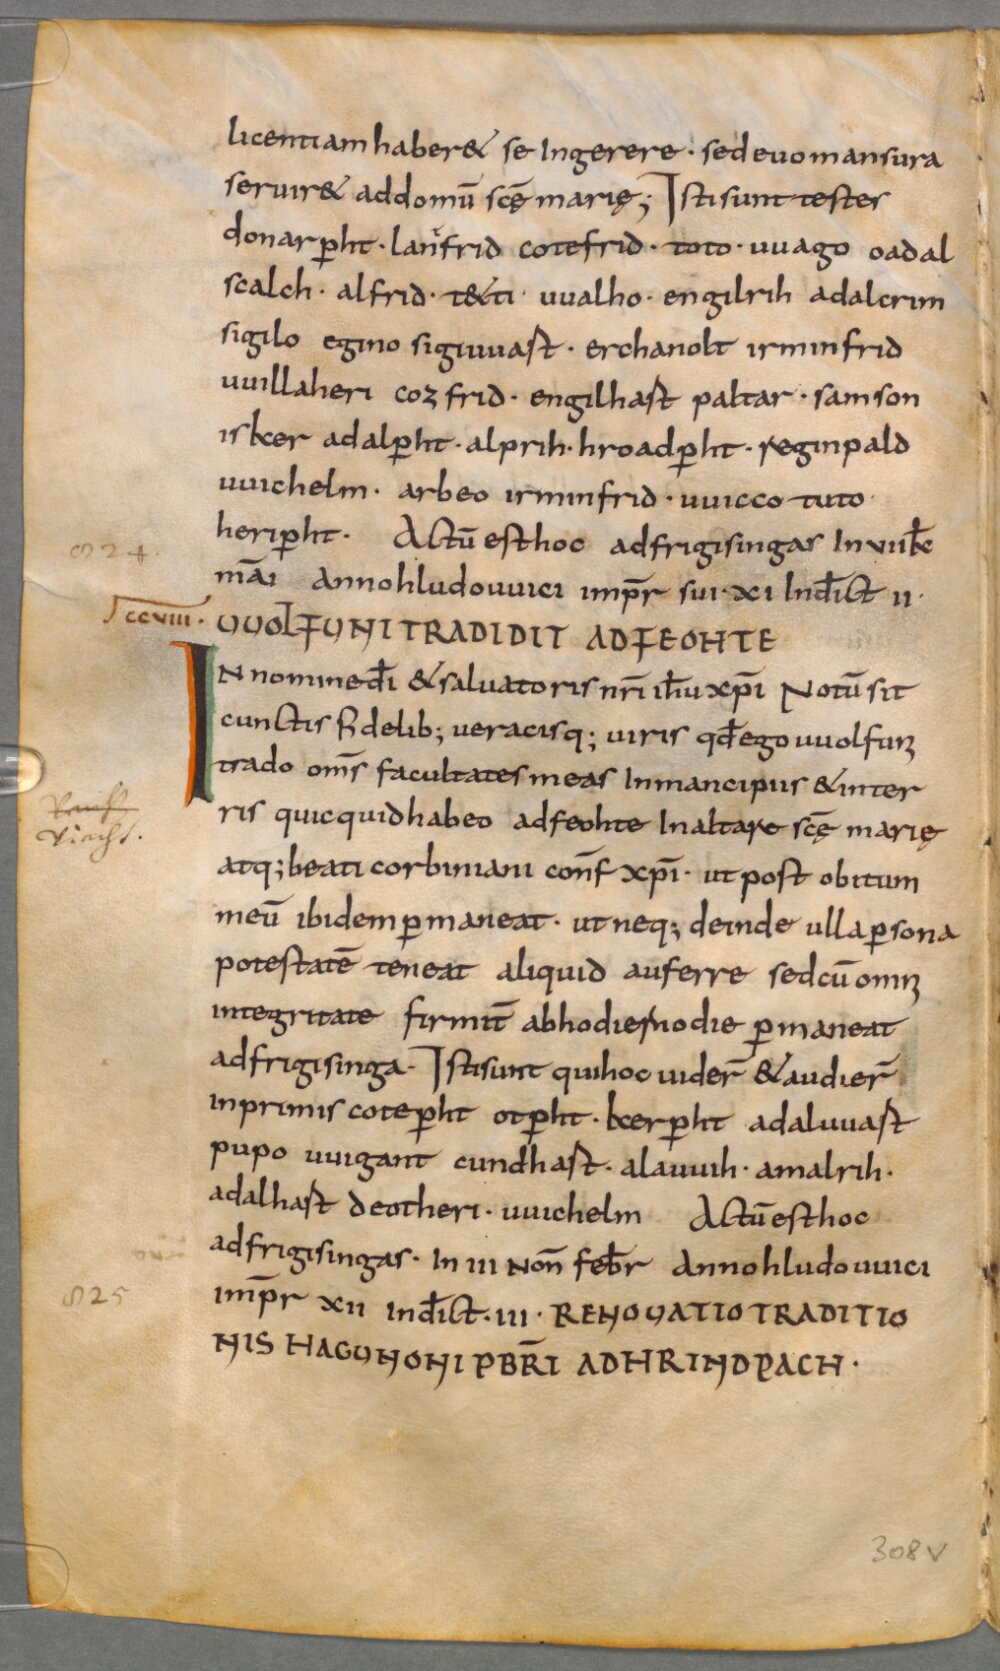 licentiam haber& se Ingerere · sed euo mansura
seruir& ad domū scę̄ marię; Isti sunt testes
donarp̄ht · lantfrid cotefrid · toto · uuago oadal
scalch · alfrid · t&ti · uualho · engilrih adalcrim
sigilo egino sigiuuast · erchanolt irminfrid
uuillaheri cozfrid · engilhast paltar · samson
isker adalp̄ht · alprih · hroadp̄ht · reginpald
uuichelm · arbeo irminfrid · uuicco tuto
herip̄ht · Actū est hoc ad frigisingas In VIII kł
824
māi Anno hludouuici imp̄r sui · XI Indict̄ II ·
ccviii · UUOLFUNI TRADIDIT AD FEOHTE
IN nomine dī & saluatoris nr̄i ih̄u xp̄i Notū sit
cunctis fidelib; veracisq; uiris qđ ego uuolfuni
trado om̄s facultates meas In mancipiis & in ter
ris quicquid habeo ad feohte In altare scę̄ marię
Viecht.
atq; beati corbiniani conf̄ xp̄i · ut post obitum
meū ibidem p̄maneat · ut neq; deinde ulla p̄sona
potestatē teneat aliquid auferre sed cū omni
integritate firmit̄ ab hodierno die p̄maneat
ad frigisinga · Isti sunt qui hoc uider̄ & audier̄
inprimis cotep̄ht otp̄ht · kerp̄ht adaluuast
pupo uuigant cundhast · alauuih · amalrih ·
adalhast deotheri · uuichelm Actū est hoc
ad frigisingas · In III Noñ feb̄r Anno hludouuici
825
imp̄r XII Indict̄ · III · RENOUATIO TRADITIO
NIS HAGUNONI PBR̄I AD HRINDPACH ·
308v